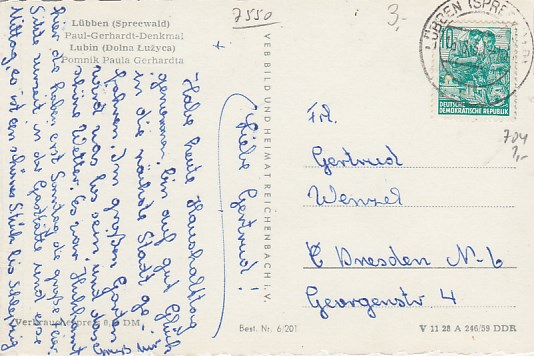 7550
3,-
Lübben (Spreewald)
Paul-Gerhardt-Denkmal
Lubin (Dolna Łužyca)
Pomnik Paula Gerhardta
LÜBBEN (SPREEWALD)
10
DEUTSCHE
DEMOKRATISCHE REPUBLIK
704
1,-
VEB BILD UND HEIMAT REICHENBACH I. V.
Liebe Gertrud!
Habe heute Haushalttag
genommen, bin auf gut Glück
in die nächste Stadt ge-
fahren. Im großen Garten
wird was los sein, und das
schöne Wetter. Es war
hier, die haben erst Sonntag die große
Sitze zurzeit in der Gaststätte und esse
Mittag, es ist ein schönes Stück bis
Frl.
Gertrud
Wenzel
Dresden N-6
Georgenstr 4
Verbraucherpreis DM
Best. Nr. 6/201
V 11 28 A 246/59 DDR